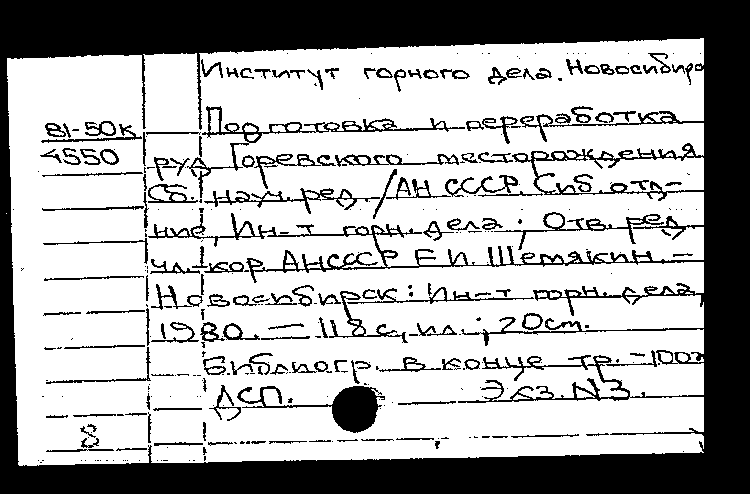 Институт горного дела. Новосибирс
81-50к
4550
Подготовка и переработка
руд Горевского месторождения
Сб. науч. ред. /АН СССР. Сиб. отд-
ние, Ин-т горн. дела; Отв. ред.
чл.-кор. АН СССР Е.И. Шемякин. –
Новосибирск: Ин-т горн. дела,
1980. – 118 с., ил.; 20 см.
Библиогр. в конце тр. –100
ДСП. Экз. N3.
8